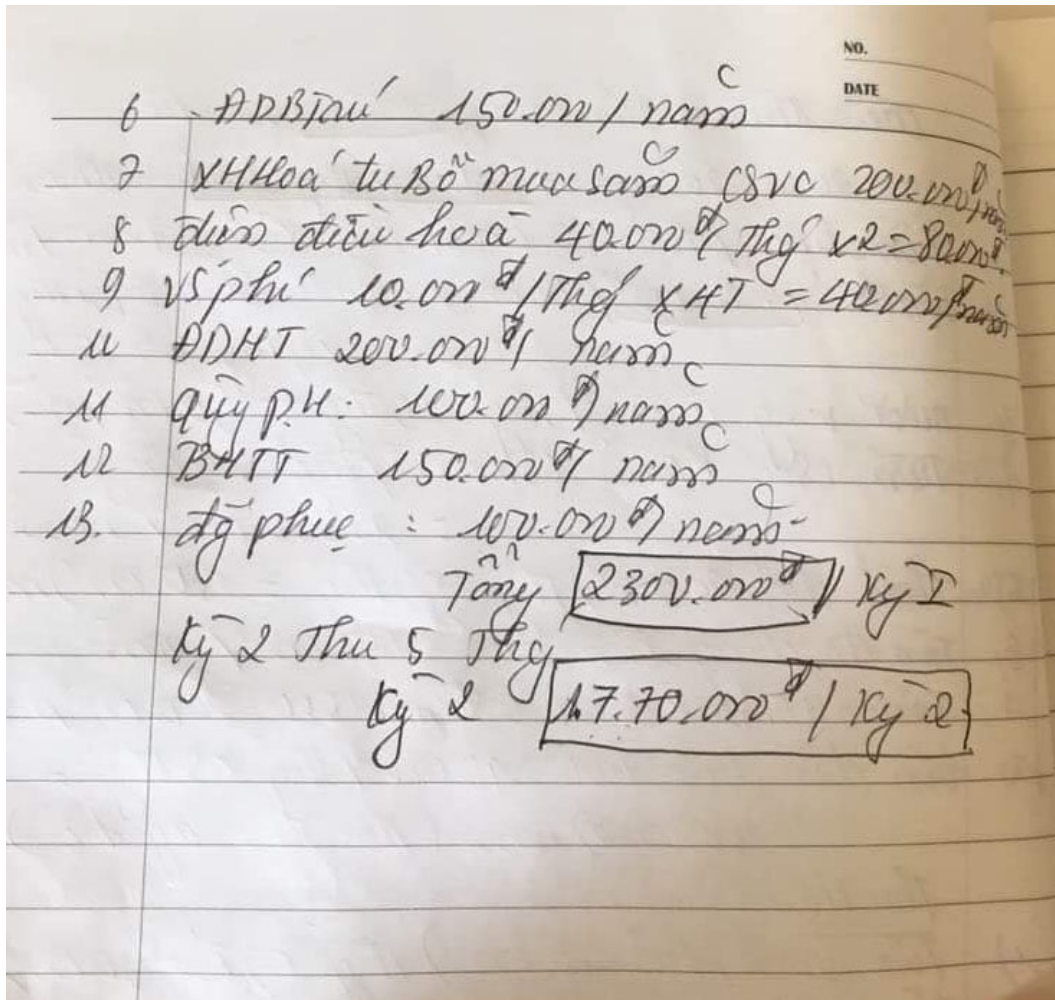 NO.
DATE
6 ĐDBTrú 150.000/ năm
7 XHHoá tu Bổ mua sắm CSVC 200.000đ/năm
8 điện điều hoà 40.000đ/Thg x2=80.000đ
9 VS phí 10.000đ/Thg x4T = 40.000/
10 ĐDHT 200.000đ/ năm
11 quỹ P.H: 100.000đ/năm
12 BHTT 150.000đ/ năm
13. đg phục : 100.000đ/năm
Tổng 2300.000đ/ Kỳ I
Kỳ 2 Thu 5 Thg
Kỳ 2 1.7.70.000đ / Kỳ 2